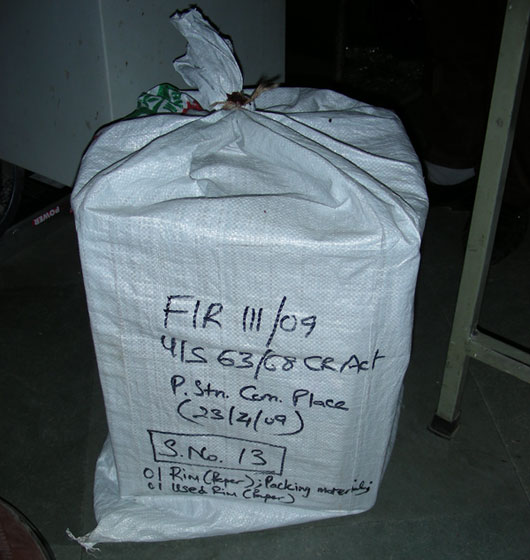 FIR 111/09
U/S 63/68 CR Act
P. Stn. Con. Place
(23/4/09)
S.No. 13
01 Rim (Paper); Packing materials;
01 Used Rim (Paper)
POWER